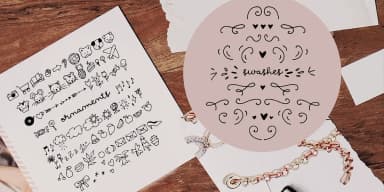 ornaments
swashes